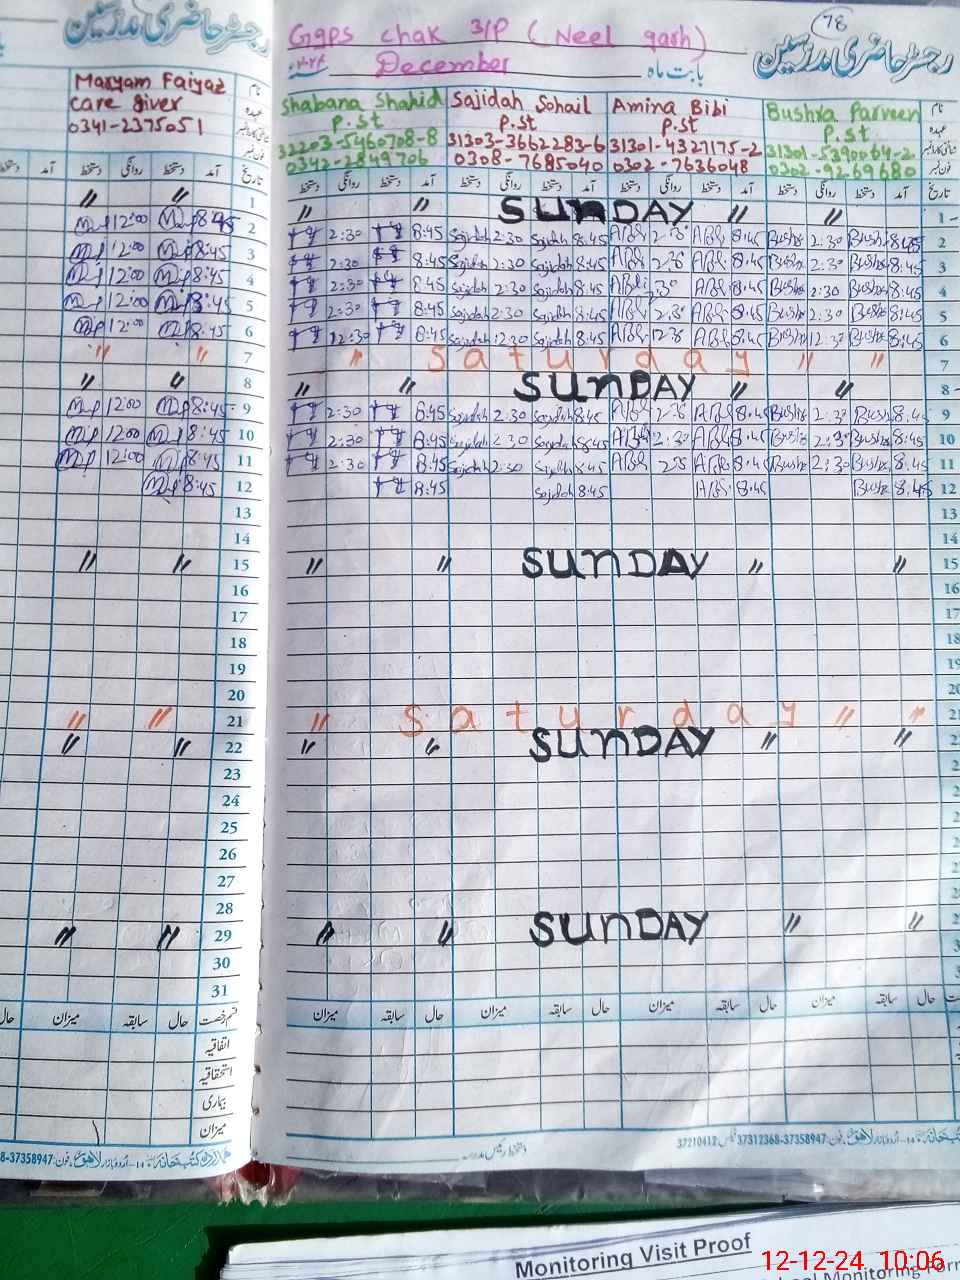 رجسٹر حاضری مدرسین
Maryam Faiyaz
care giver
0341-2375051
نام
عہدہ
آمد دستخط روانگی دستخط آمد
تاریخ
1 〃 〃
2 8:45 12:00
3 8:45 12:00
4 8:45 12:00
5 8:45 12:00
6 8:45 12:00
7 〃 〃
8 〃 〃
9 8:45 12:00
10 8:45 12:00
11 8:45 12:00
12 8:45
13
14
15 〃 〃
16
17
18
19
20
21 〃 〃
22 〃 〃
23
24
25
26
27
28
29 〃 〃
30
31
قسم رخصت حال سابقہ میزان حال
اتفاقیہ
استحقاقیہ
بیماری
میزان
78
Ggps chak 31P (Neel gash)
رجسٹر حاضری مدرسین
December
بابت ماہ
سنہ
Shabana Shahid Sajidah Sohail Amina Bibi Bushra Parveen
P.st P.st P.st P.st
32203-5460708-8 31303-3662283-6 31301-4327175-2 31301-5390064-2
0342-2849706 0308-7685040 0302-7636048 0302-9269680
نام
عہدہ
تاریخ
دستخط روانگی دستخط آمد دستخط روانگی دستخط آمد دستخط روانگی دستخط آمد دستخط روانگی دستخط آمد
〃 〃 SUNDAY 〃 〃 1
2:30 8:45 Sajidah 2:30 Sajidah 8:45 2:30 8:45 Bushra 2:30 Bushra 8:45 2
2:30 8:45 Sajidah 2:30 Sajidah 8:45 2:30 8:45 Bushra 2:30 Bushra 8:45 3
2:30 8:45 Sajidah 2:30 Sajidah 8:45 2:30 8:45 Bushra 2:30 Bushra 8:45 4
2:30 8:45 Sajidah 2:30 Sajidah 8:45 2:30 8:45 Bushra 2:30 Bushra 8:45 5
12:30 8:45 Sajidah 12:30 Sajidah 8:45 12:30 8:45 Bushra 12:30 Bushra 8:45 6
〃 Saturday 〃 〃 7
〃 〃 SUNDAY 〃 〃 8
2:30 8:45 Sajidah 2:30 Sajidah 8:45 2:30 8:45 Bushra 2:30 Bushra 8:45 9
2:30 8:45 Sajidah 2:30 Sajidah 8:45 2:30 8:45 Bushra 2:30 Bushra 8:45 10
2:30 8:45 Sajidah 2:30 Sajidah 8:45 8:45 Bushra 2:30 Bushra 8:45 11
8:45 Sajidah 8:45 8:45 Bushra 8:45 12
13
14
〃 〃 SUNDAY 〃 〃 15
16
17
18
19
20
〃 Saturday 〃 〃 21
〃 〃 SUNDAY 〃 〃
〃 〃 SUNDAY 〃 〃
میزان سابقہ حال میزان سابقہ حال میزان سابقہ حال میزان سابقہ حال
دستخط رئیس مدرسہ
37312368-37358947 37210412
8-37358947
Monitoring Visit Proof
12-12-24 10:06